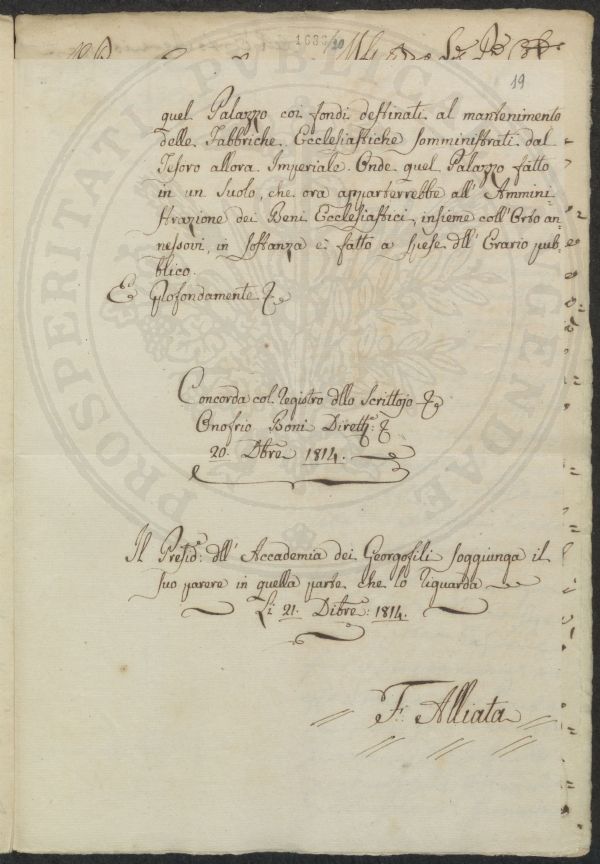 1633/20
19
quel Palazzo coi fondi destinati al mantenimento
delle Fabbriche Ecclesiastiche somministrati dal
Tesoro allora Imperiale. Onde quel Palazzo fatto
in un suolo, che ora apparterrebbe all' Ammini-
strazione dei Beni Ecclesiastici, insieme coll' Orto an-
nessovi, in sostanza è fatto a spese dll' Erario pub-
blico.
E profondamente &
Concorda col Registro dllo Scrittojo &
Onofrio Boni Dirett.e &
20. Dbre 1814.
Il Presid.e dll' Accademia dei Georgofili soggiunga il
suo parere in quella parte che lo riguarda
Li 21. Dibre: 1814.
F. Alliata
PROSPERITATI PUBLICAE AUGENDAE